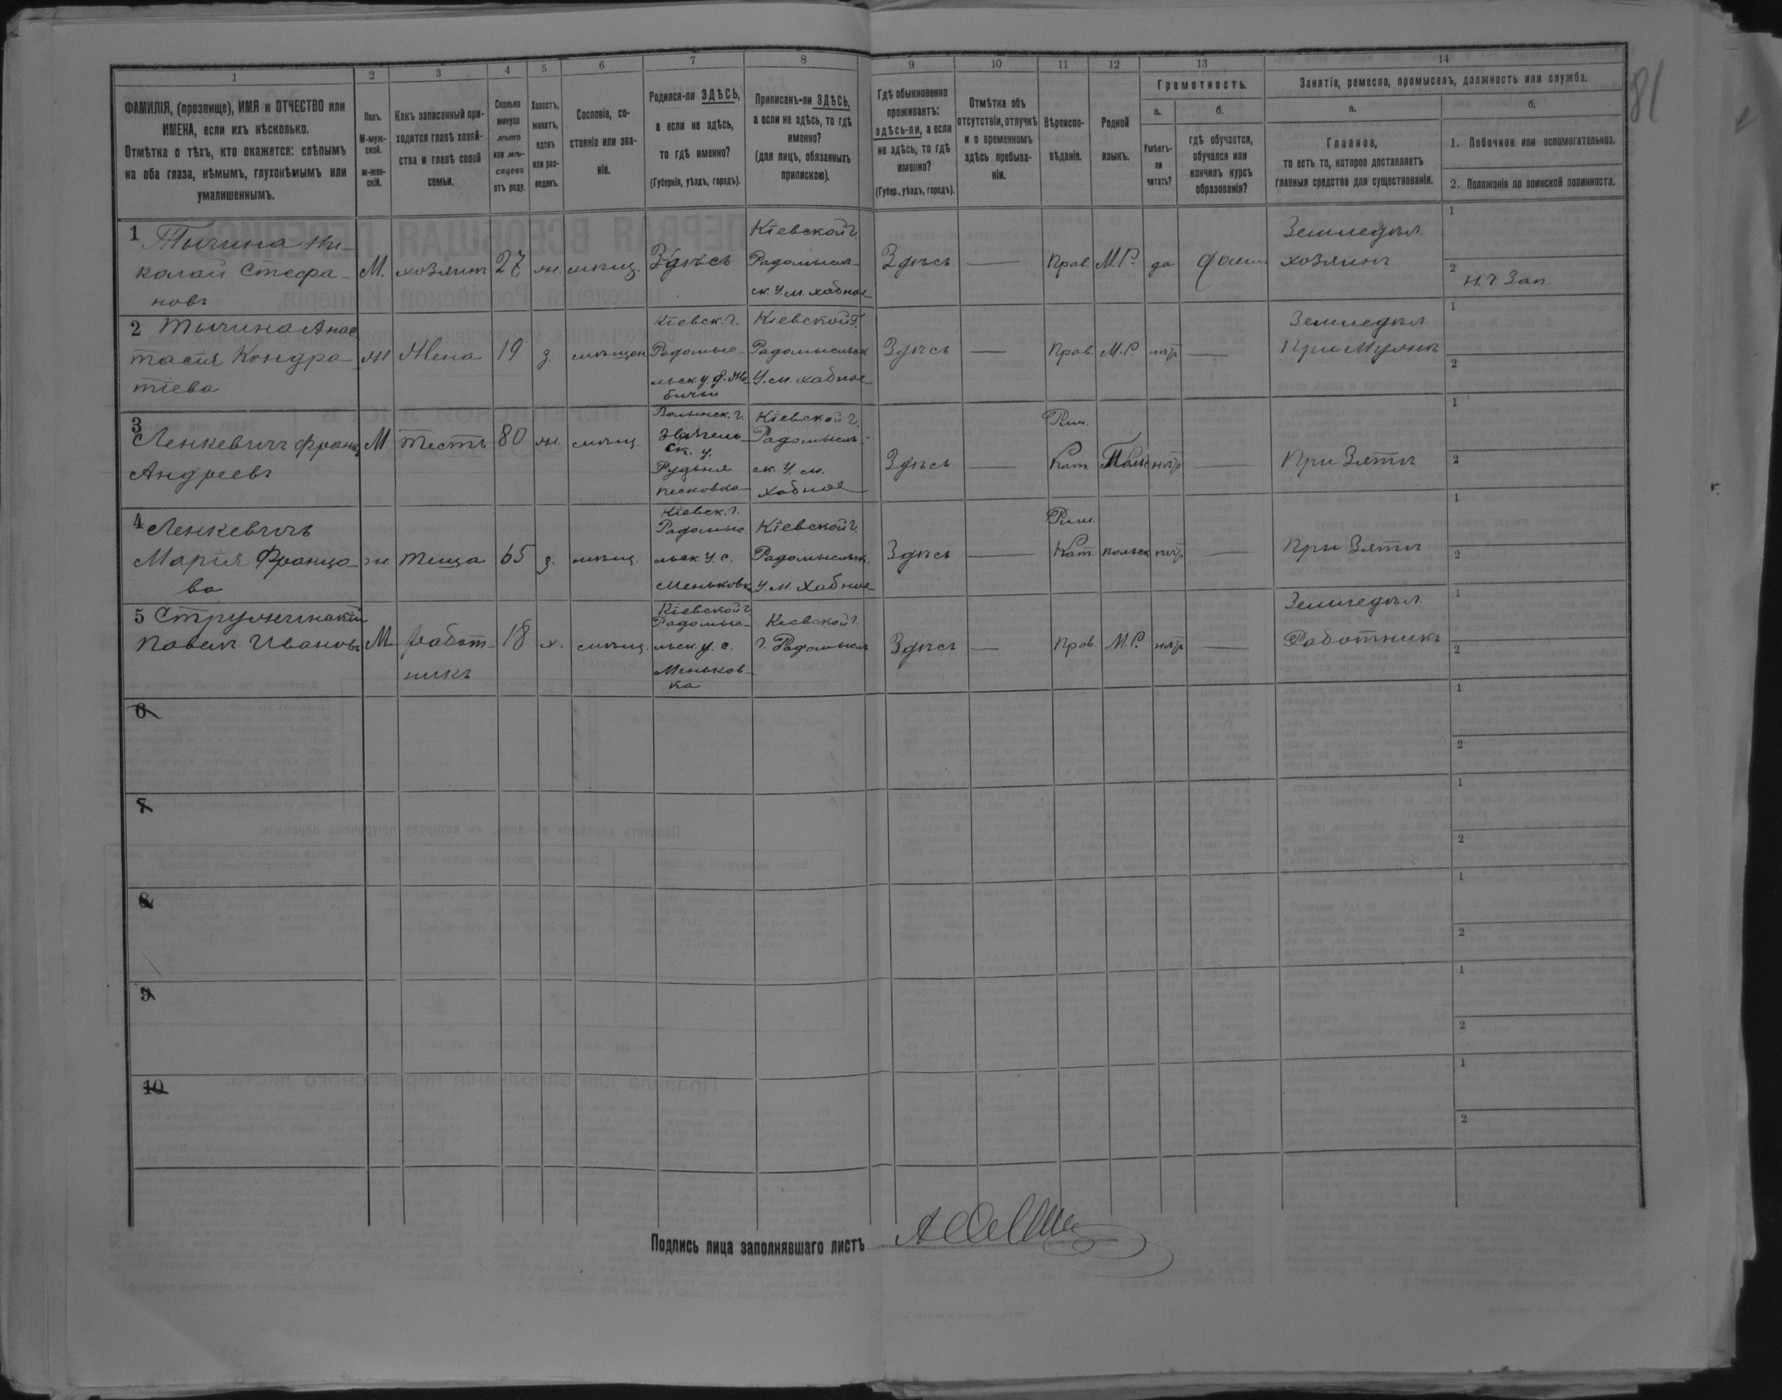 81
1 2 3 4 5 6 7 8 9 10 11 12 13 14
ФАМИЛІЯ, (прозвище), ИМЯ и ОТЧЕСТВО или
ИМЕНА, если ихъ нѣсколько.
Отмѣтка о тѣхъ, кто окажется: слѣпымъ
на оба глаза, нѣмымъ, глухонѣмымъ или
умалишеннымъ.
Полъ.
М-муж-
ской.
ж-жен-
скій.
Какъ записанный при-
ходится главѣ хозяй-
ства и главѣ своей
семьи.
Сколько
минуло
лѣтъ
или мѣ-
сяцевъ
отъ роду.
Холостъ,
женатъ,
вдовъ
или раз-
веденъ.
Сословіе, со-
стояніе или зва-
ніе.
Родился-ли ЗДѢСЬ,
а если не здѣсь,
то гдѣ именно?
(Губернія, уѣздъ, городъ).
Приписанъ-ли ЗДѢСЬ,
а если не здѣсь, то гдѣ
именно?
(для лицъ, обязанныхъ
припискою).
Гдѣ обыкновенно
проживаетъ:
здѣсь-ли, а если
не здѣсь, то гдѣ
именно?
(Губер., уѣздъ, городъ).
Отмѣтка объ
отсутствіи, отлучкѣ
и о временномъ
здѣсь пребыва-
ніи.
Вѣроиспо-
вѣданіе.
Родной
языкъ.
Грамотность.
а.
Умѣетъ-
ли
читать?
б.
гдѣ обучается,
обучался или
кончилъ курсъ
образованія?
Занятіе, ремесло, промыселъ, должность или служба.
а.
Главное,
то есть то, которое доставляетъ
главныя средства для существованія.
б.
1. Побочное или вспомогательное.
2. Положеніе по воинской повинности.
1 Тычина Ни-
колай Стефа-
новъ
М. хозяинъ 27 ж. мѣщ. Здѣсь
Кіевской г.
Радомысль-
ск. у. м. Хабное
Здѣсь — Прав. М.Р. да
Земледѣл.
хозяинъ
1
2
2 Тычина Анас
тасія Кондра-
тіева
ж Жена 19 з. мѣщан
Кіевск. г.
Радомыс-
льск у
Кіевской Г.
Радомысльск
у. м. Хабное
Здѣсь — Прав. М.Р. нѣтъ —
Земледѣл
При Мужѣ
1
2
3
Ленкевичъ Франц
Андреевъ
М Тесть 80 ж. мѣщ.
Волынск. г.
Звягель-
ск. у.
Рудьня
песковка
Кіевской г.
Радомысль-
ск. у. м.
Хабное
Здѣсь —
Рим.
Кат. Польс нѣтъ —
При Зятѣ
1
2
4 Ленкевичъ
Марія Францо-
ва
ж. теща 65 з. мѣщ.
Кіевск. г.
Радомыс.
льск. у. с.
Меньковк
Кіевской г.
Радомысльск.
у. м. Хабное
Здѣсь —
Рим.
Кат польск нѣтъ —
При Зятѣ
1
2
5
Павелъ Ивановъ
М работ-
никъ
18 х. мѣщ.
Кіевской г
Радомыс-
льск. у. с.
Меньков-
ка
Кіевской г.
г. Радомысль
Здѣсь — Прав М.Р. нѣтъ —
Земледѣл
Работникъ
1
2
6
1
2
7
1
2
8
1
2
9
1
2
10
1
2
Подпись лица заполнявшаго листъ